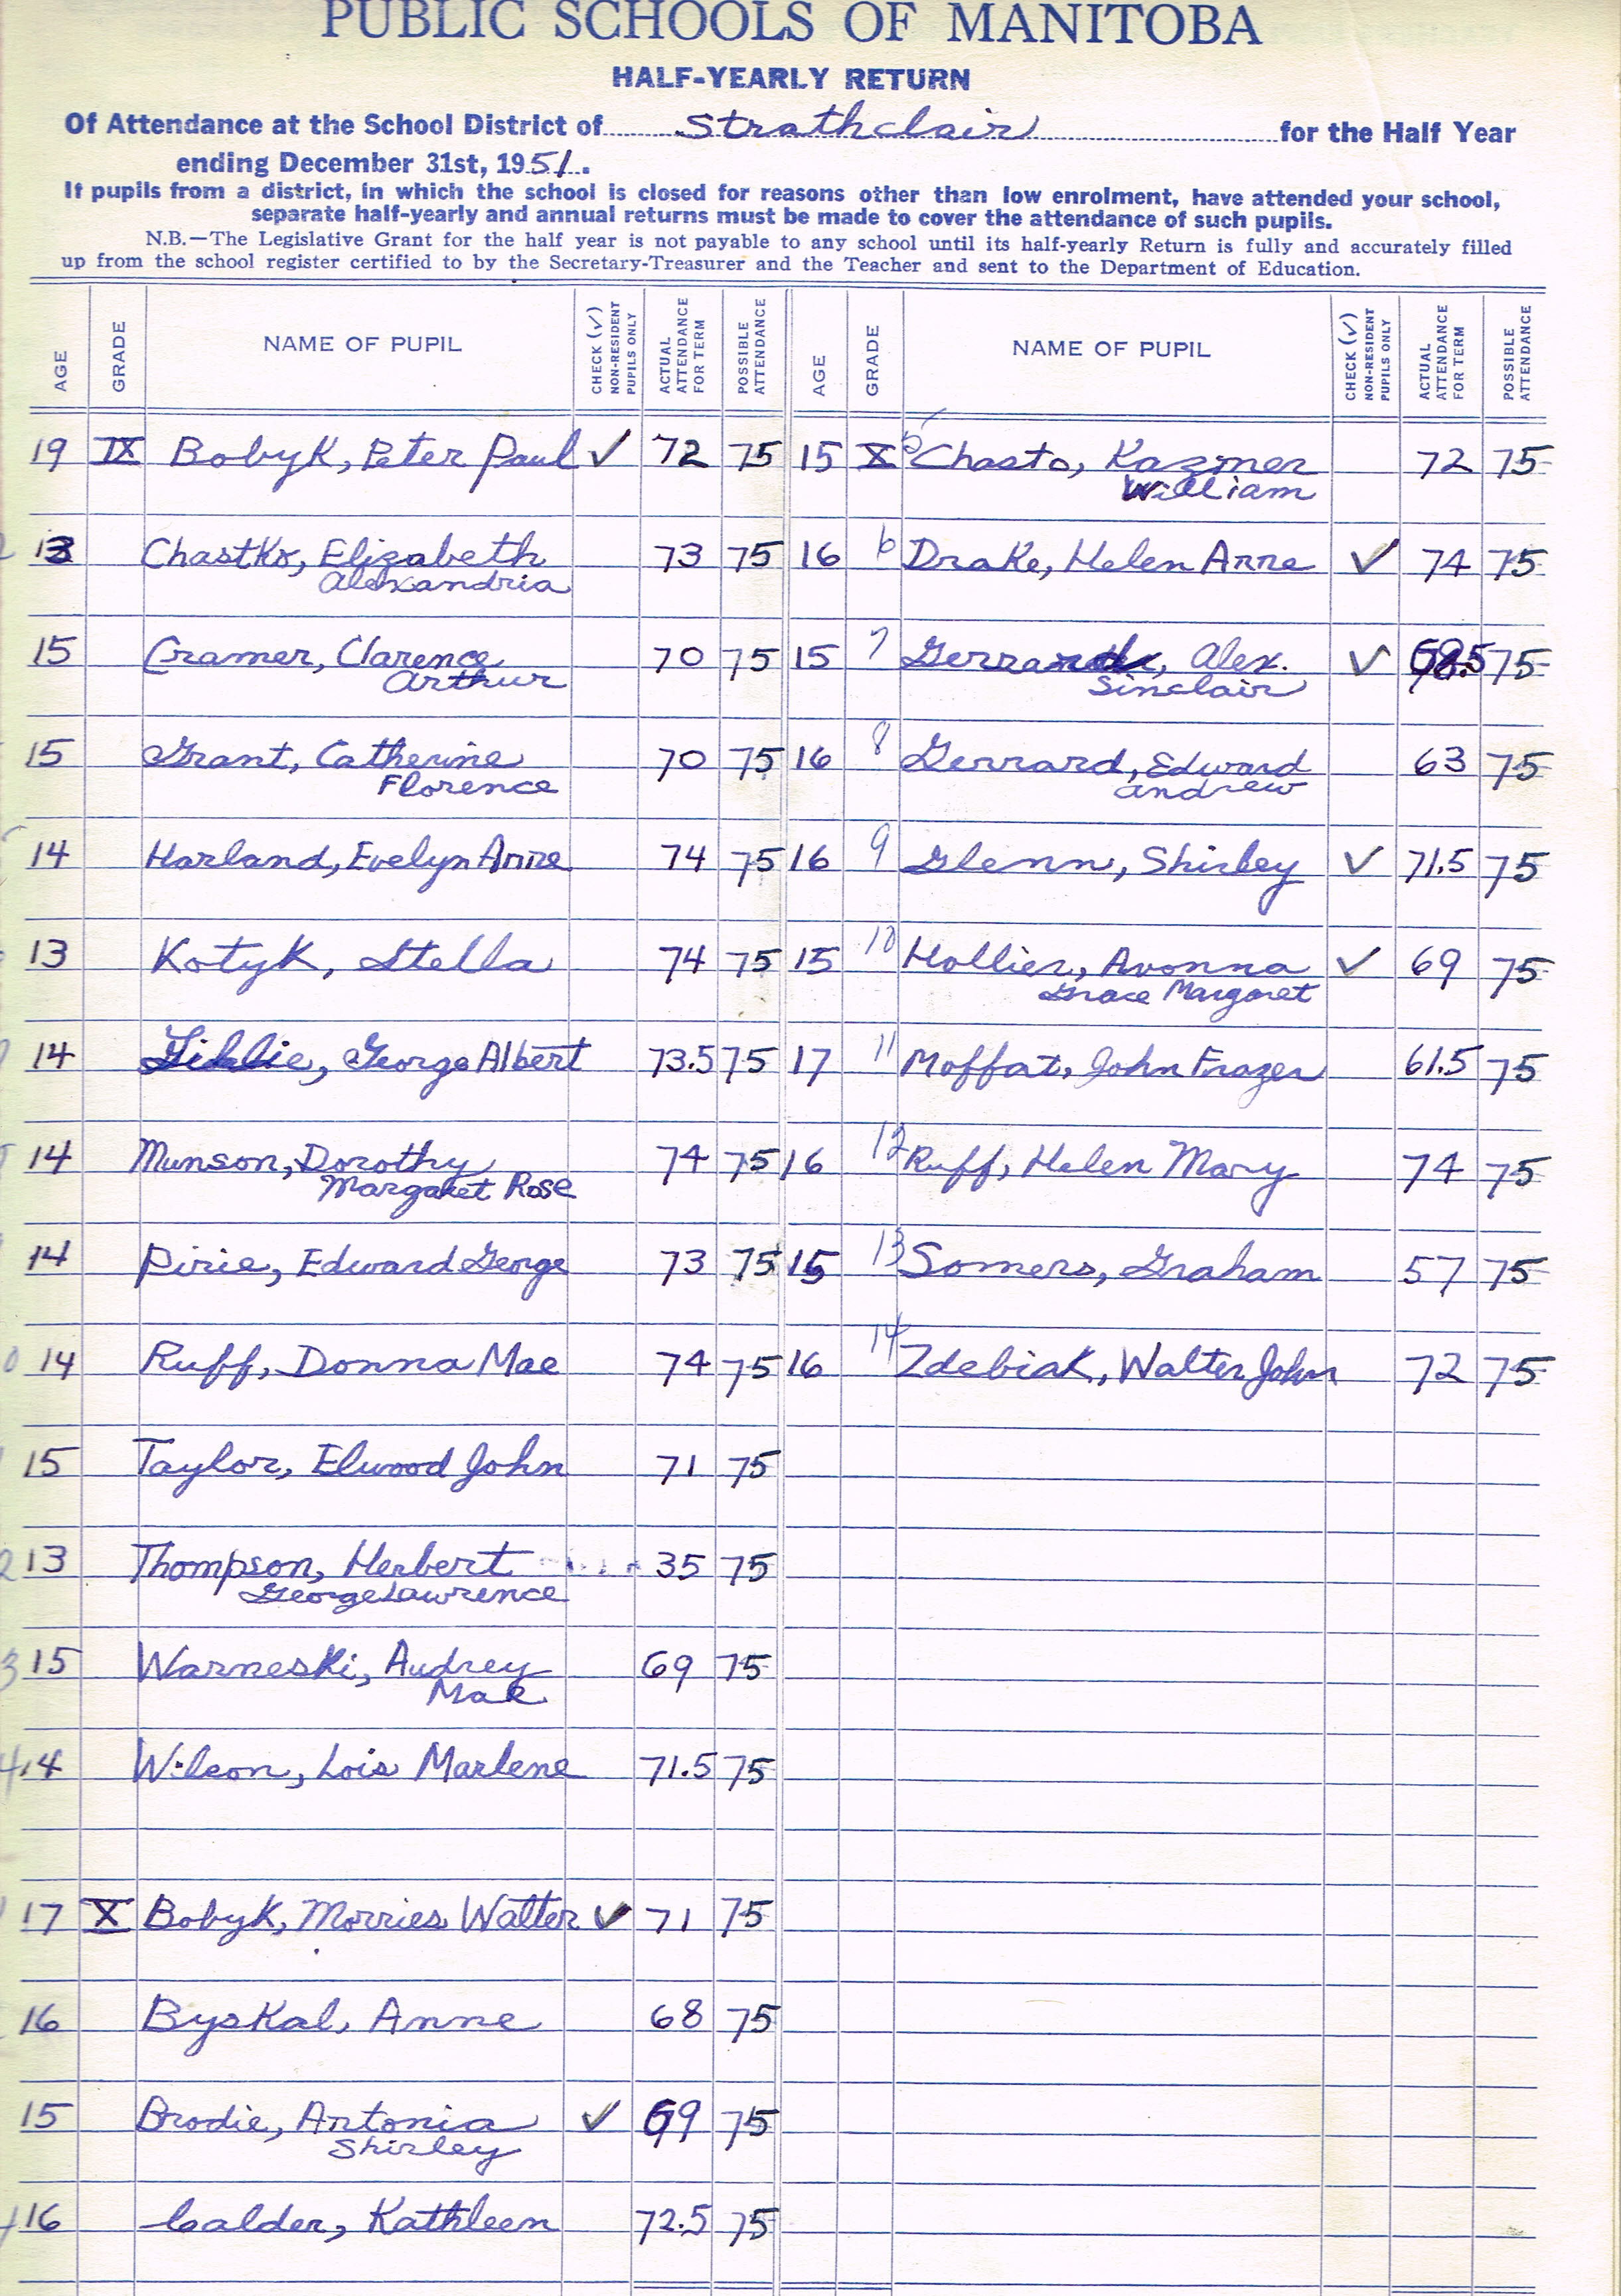 PUBLIC SCHOOLS OF MANITOBA
HALF-YEARLY RETURN
Of Attendance at the School District of Strathclair for the Half Year
ending December 31st, 1951.
If pupils from a district, in which the school is closed for reasons other than low enrolment, have attended your school,
separate half-yearly and annual returns must be made to cover the attendance of such pupils.
N.B.—The Legislative Grant for the half year is not payable to any school until its half-yearly Return is fully and accurately filled
up from the school register certified to by the Secretary-Treasurer and the Teacher and sent to the Department of Education.
AGE GRADE NAME OF PUPIL CHECK (√) NON-RESIDENT PUPILS ONLY ACTUAL ATTENDANCE FOR TERM POSSIBLE ATTENDANCE AGE GRADE NAME OF PUPIL CHECK (√) NON-RESIDENT PUPILS ONLY ACTUAL ATTENDANCE FOR TERM POSSIBLE ATTENDANCE
19 IX Bobyk, Peter Paul ✓ 72 75 15 X 5 Chasto, Kazmer 72 75
William
13 Chastko, Elizabeth 73 75 16 6 Drake, Helen Anne ✓ 74 75
Alexandria
15 Cramer, Clarence 70 75 15 7 Alex. ✓ 75
Arthur Sinclair
15 Grant, Catherine 70 75 16 8 Gerrard, Edward 63 75
Florence Andrew
14 Harland, Evelyn Anne 74 75 16 9 Glenn, Shirley ✓ 71.5 75
13 Kotyk, Stella 74 75 15 10 Hollier, Avonna ✓ 69 75
Grace Margaret
14 George Albert 73.5 75 17 11 Moffat, John Frazer 61.5 75
14 Munson, Dorothy 74 75 16 12 Ruff, Helen Mary 74 75
Margaret Rose
14 Pirie, Edward George 73 75 15 13 Somers, Graham 57 75
14 Ruff, Donna Mae 74 75 16 14 Zdebiak, Walter John 72 75
15 Taylor, Elwood John 71 75
13 Thompson, Herbert 35 75
George Lawrence
15 Warneski, Audrey 69 75
Mae
14 Wilson, Lois Marlene 71.5 75
17 X Bobyk, Morries Walter ✓ 71 75
16 Byskal, Anne 68 75
15 Brodie, Antonia ✓ 69 75
Shirley
16 Calder, Kathleen 72.5 75